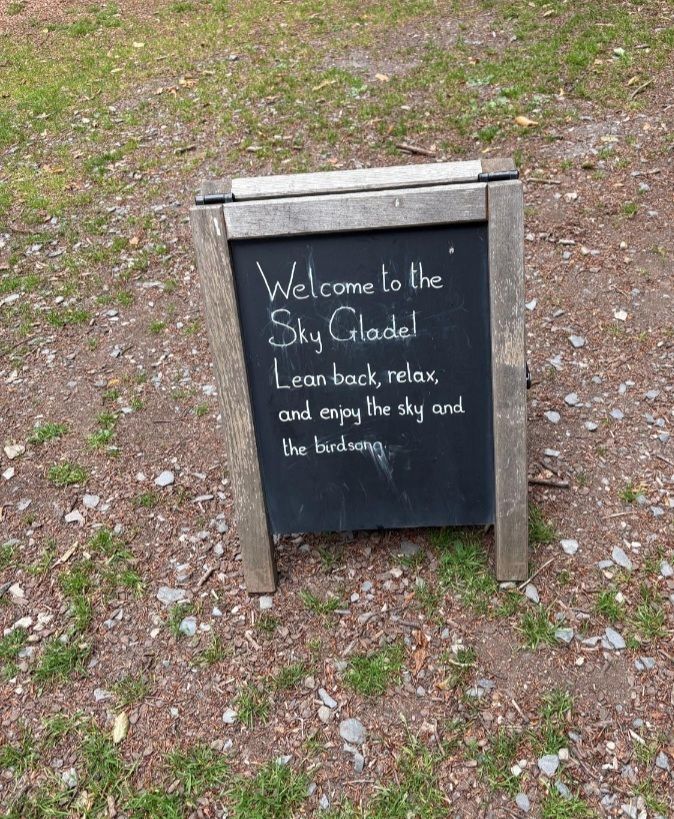 Welcome to the
Sky Glade!
Lean back, relax,
and enjoy the sky and
the birdsong.